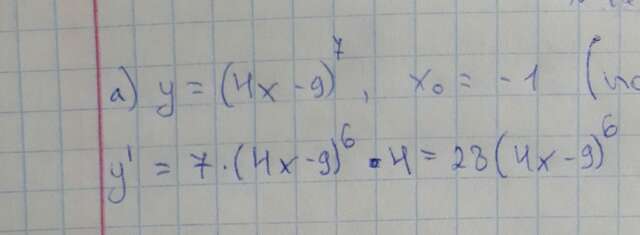 а) y = (4x - 9)^7, x₀ = -1 (
y' = 7 · (4x - 9)^6 · 4 = 28 (4x - 9)^6